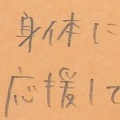 身体に
応援して